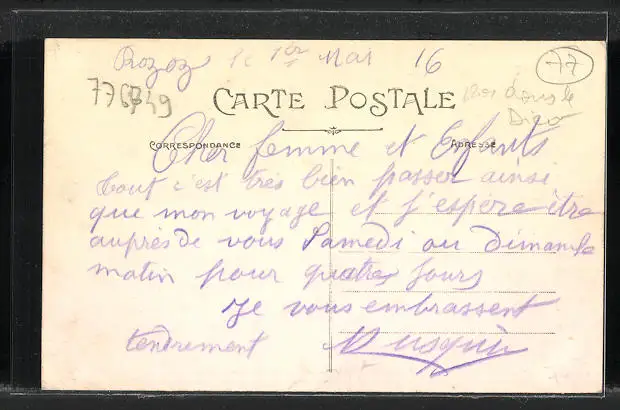 Rozoz le 1er Mai 16
77
CARTE POSTALE
CORRESPONDANCE
ADRESSE
Cher femme et Enfants
tout c'est très bien passer ainsi
que mon voyage et j'espère être
auprès de vous Samedi ou dimanche
matin pour quatre jours
Je vous embrassent
tendrement